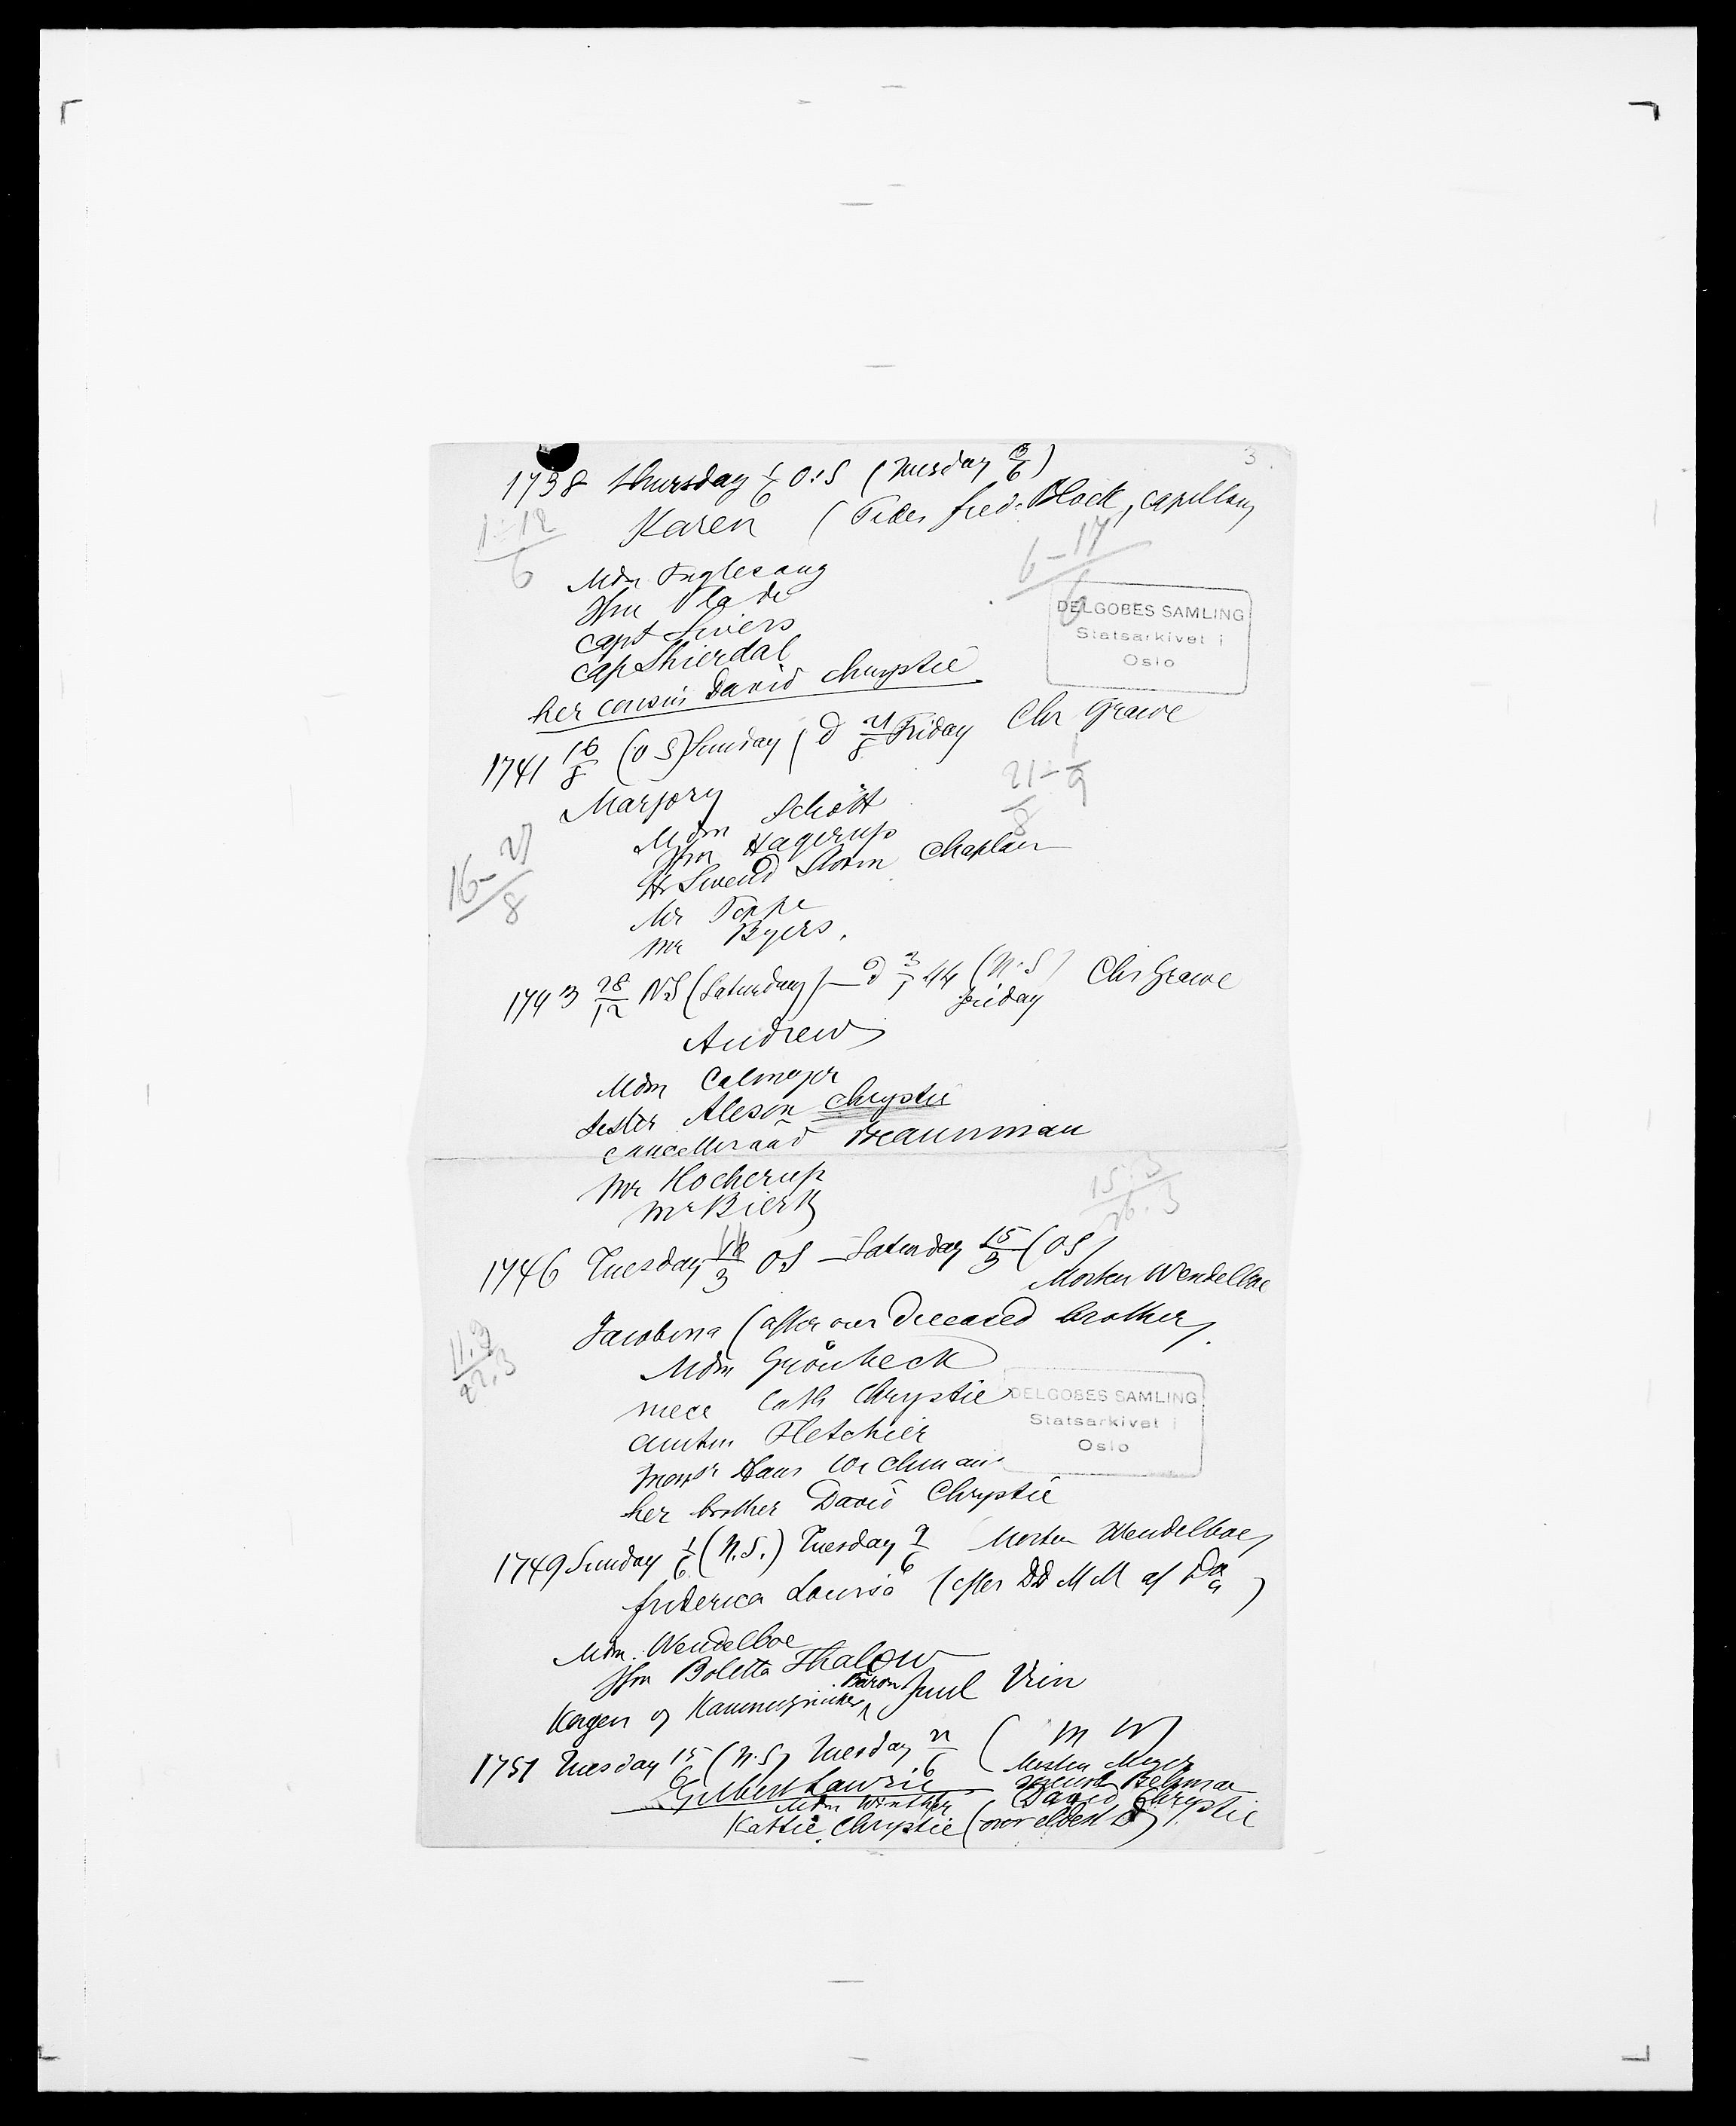 3.
1738 Thursday 1/6 O:S (Tuesday 6/6)
Karen (Peder fred. Block, capellan)
1-12/6
6-17/6
Mdm
Jfru
capt Sivers
cap Shierdal
her cousin David Chrystie
DELGOBES SAMLING
Statsarkivet i
Oslo
1741 16/8 (O S) Sunday ( d 21/8 Friday Chr Grave
Marjory
21/8 - 1/9
Mdm Schött
Jfru Hagerup
Hr Svend Storm Chaplain
16-27/8
Mr Foppe
Mr Byers.
1743 28/12 NS (Saturday) — d 3/1 44 (N.S) Friday Chr Grave
Andrew
Mdm Calmeyer
Sister Aleson Chrystie
cancelleraad Braunman
Mr Hocherup
Mr Biertz
15.3/26.3
1746 Tuesday 11/3 OS — Saturday 15/3 (OS)
Morten Wendelboe
Jacobina (after our deceased brother)
11.3/22.3
Mdm Grönbeck
niece Cath Chrystie
amtm Fletchier
Monsr Hans Wichman
her brother David Chrystie
DELGOBES SAMLING
Statsarkivet i
Oslo
1749 Sunday 1/6 (N.S.) Tuesday 9/6 Morten Wendelboe
friderica Lovisa (efter DD MM af )
Mdm. Wendelboe
Jfru Boletta Thalow
Kongen og Kammerjunker Baron Juul Vin
1751 Tuesday 15/6 (N.S) Tuesday 22/6 ( M W)
Gilbert Lawrie
Morten Meyer
Mdm Winther
David Chrystie
Kattie Chrystie (our eldest D)